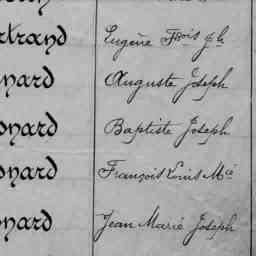 rtrand Eugène Fçois Jh
onard Auguste Joseph
onard Baptiste Joseph
onard François Louis Mie
onard Jean Marie Joseph